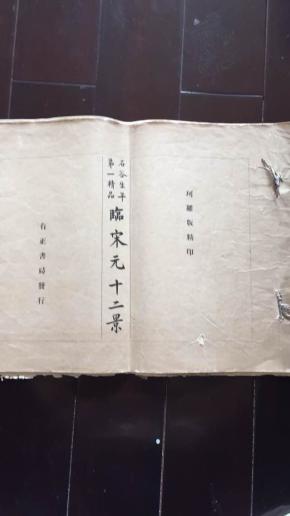 珂羅版精印
石谷生平
第一精品
臨宋元十二景
有正書局發行